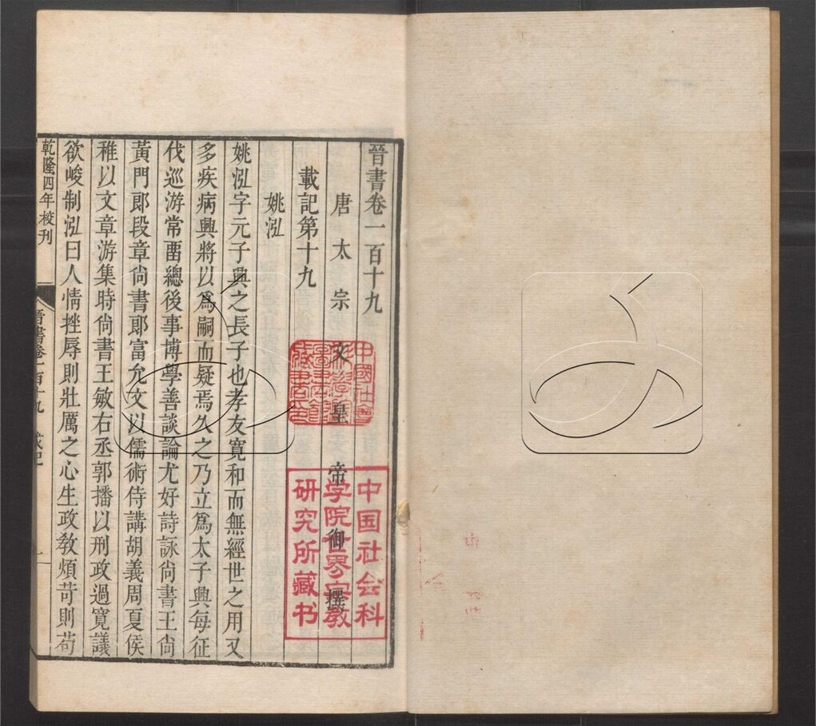 晉書卷一百十九
唐太宗文皇帝御撰
載記第十九
姚泓
姚泓字元子興之長子也孝友寬和而無經世之用又
多疾病興將以爲嗣而疑焉久之乃立爲太子興每征
伐巡游常畱總後事博學善談論尤好詩詠尙書王尙
黃門郞段章尙書郞富允文以儒術侍講胡義周夏侯
稚以文章游集時尙書王敏右丞郭播以刑政過寬議
欲峻制泓曰人情挫辱則壯厲之心生政敎煩苛則苟
乾隆四年校刊
晉書卷一百十九
中国社会科
学院世界宗教
研究所藏书